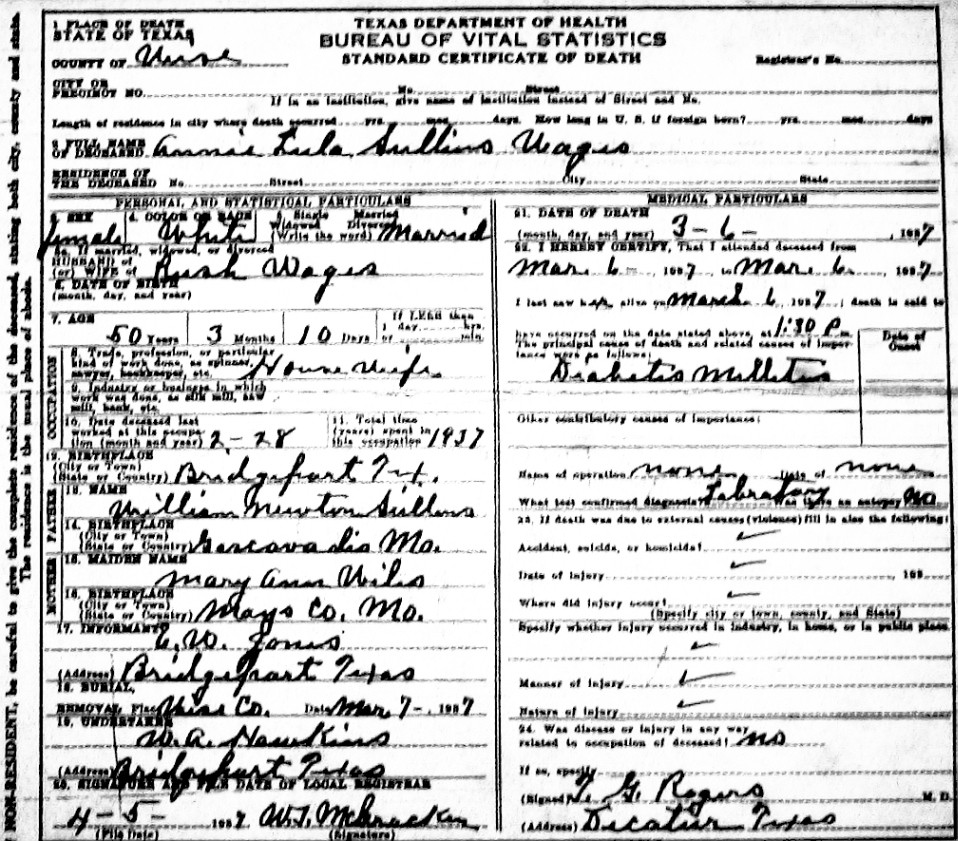 TEXAS DEPARTMENT OF HEALTH
BUREAU OF VITAL STATISTICS
STANDARD CERTIFICATE OF DEATH
1 PLACE OF DEATH
STATE OF TEXAS
COUNTY OF Wise
Registrar's No.
CITY OR
PRECINCT NO. No. Street
If in an institution, give name of institution instead of Street and No.
Length of residence in city where death occurred yrs. mos. days. How long in U. S. if foreign born? yrs. mos. days
2 FULL NAME
OF DECEASED Annie Lula Sullins Wages
RESIDENCE OF
THE DECEASED No. Street City State
PERSONAL AND STATISTICAL PARTICULARS
3. SEX 4. COLOR OR RACE 5. Single Married
Widowed Divorced
female White (Write the word) Married
5a. If married, widowed, or divorced
HUSBAND of
(or) WIFE of Rush Wages
6. DATE OF BIRTH
(month, day, and year)
7. AGE If LESS than
1 day hrs.
50 Years 3 Months 10 Days or min.
OCCUPATION
8. Trade, profession, or particular
kind of work done, as spinner,
sawyer, bookkeeper, etc. House Wife
9. Industry or business in which
work was done, as silk mill, saw
mill, bank, etc.
10. Date deceased last
worked at this occupa-
tion (month and year) 2-28
11. Total time
(years) spent in
this occupation 1937
12. BIRTHPLACE
(City or Town)
(State or Country) Bridgeport Tex.
FATHER
13. NAME
William Newton Sullins
14. BIRTHPLACE
(City or Town)
(State or Country) Mo.
MOTHER
15. MAIDEN NAME
Mary Ann Wiles
16. BIRTHPLACE
(City or Town)
(State or Country) Mays Co. Mo.
17. INFORMANT
W. Jones
(Address) Bridgeport Texas
18. BURIAL,
REMOVAL Place Wise Co. Date Mar 7-, 1937
19. UNDERTAKER
W. A. Hawkins
(Address) Bridgeport Texas
20. SIGNATURE AND FILE DATE OF LOCAL REGISTRAR
4-5- 1937. W.T. McCracken
(File Date) (Signature)
MEDICAL PARTICULARS
21. DATE OF DEATH
(month, day, and year) 3-6-, 1937
22. I HEREBY CERTIFY, That I attended deceased from
Mar. 6-, 1937, to Mar. 6, 1937
I last saw her alive on March 6 1937; death is said to
have occurred on the date stated above, at 1:30 P.m.
The principal cause of death and related causes of impor-
tance were as follows:
Date of
Onset
Diabetis Millitus
Other contributory causes of importance:
Name of operation none Date of none
What test confirmed diagnosis? Labratory Was there an autopsy No
23. If death was due to external causes (violence) fill in also the following:
Accident, suicide, or homicide? ✓
Date of injury ✓ , 193
Where did injury occur? ✓
(Specify city or town, county, and State)
Specify whether injury occurred in industry, in home, or in public place.
✓
Manner of injury ✓
Nature of injury ✓
24. Was disease or injury in any way
related to occupation of deceased? no
If so, specify
(Signed) G. Rogers M. D.
(Address) Decatur Texas
NON-RESIDENT, be careful to give the complete residence of the deceased, stating both city, county and state.
The residence is the usual place of abode.